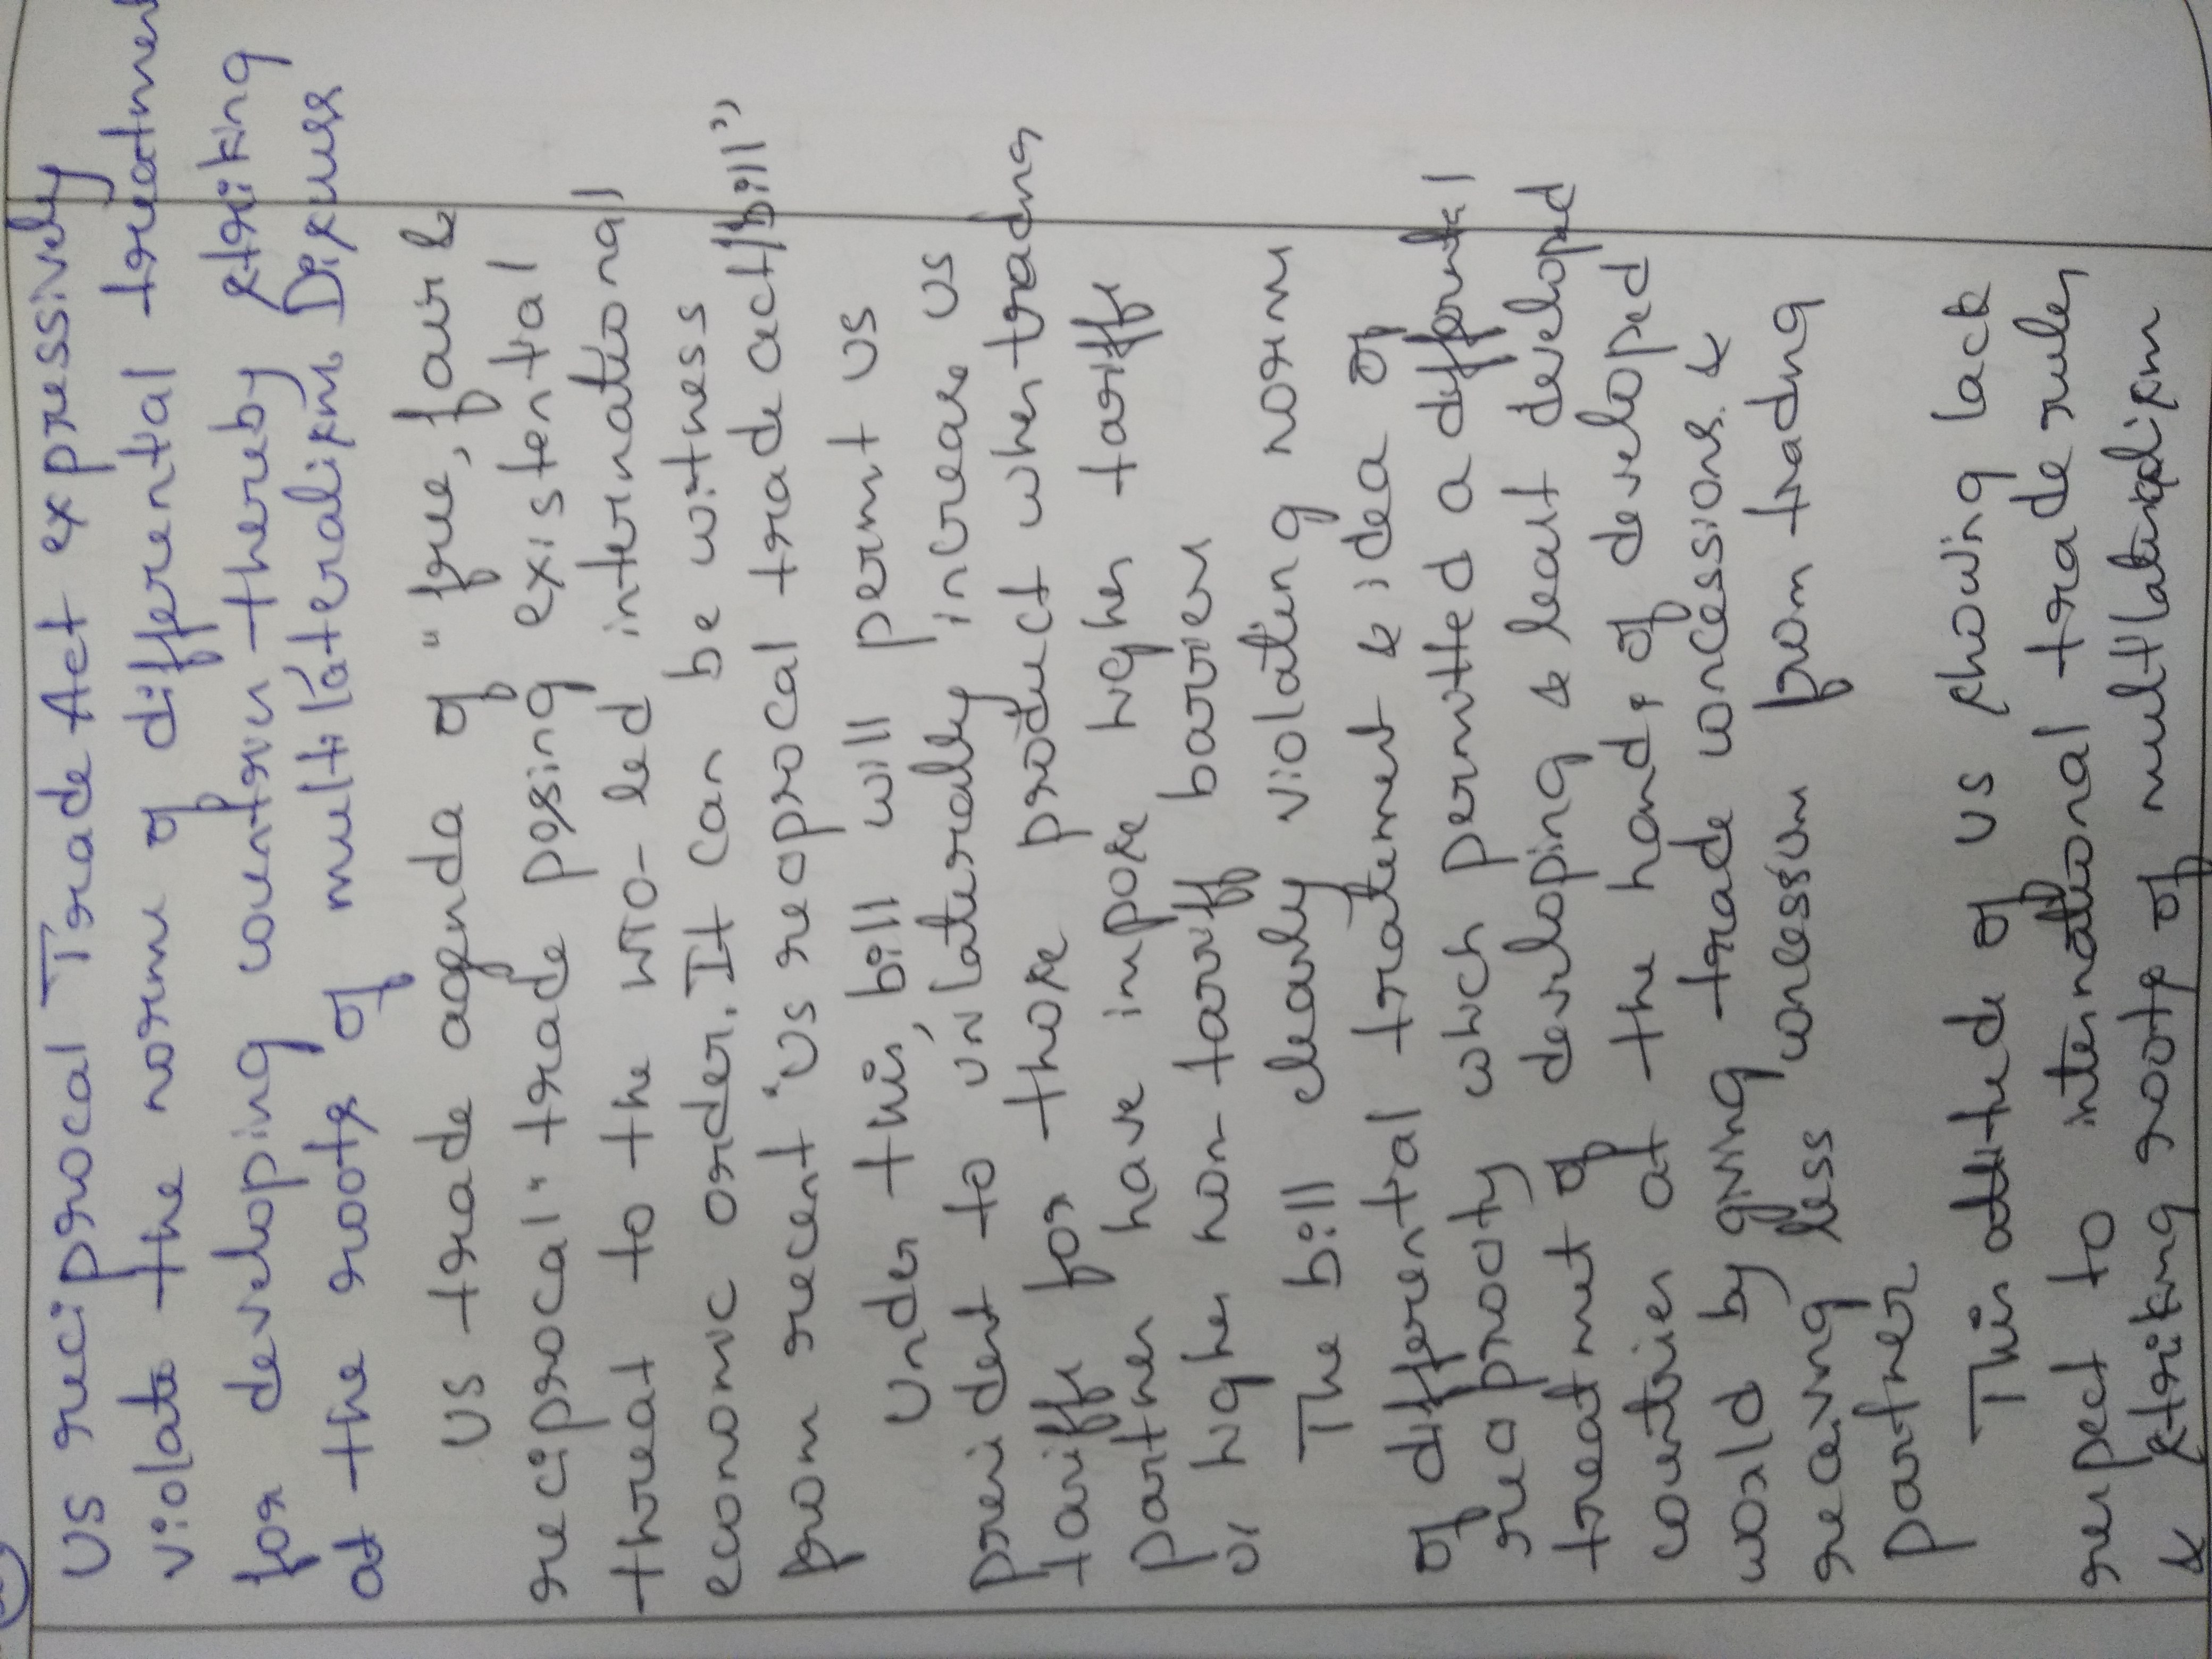 US reciprocal Trade Act expressively
violate the norms of differential treatment
for developing countries thereby striking
at the roots of multilateralism. Discuss
US trade agenda of "free, fair &
reciprocal" trade posing existential
threat to the WTO-led international
economic order. It can be witness
from recent 'US reciprocal trade act/bill"
Under this, bill will permit US
president to unilaterally increase US
tariffs for those product when trading
partner have impose higher tariffs
or higher non-tariff barriers
The bill clearly violating norms
of differential treatment & idea of
reciprocity which permitted a differential
treatment of developing & least developed
countries at the hands of developed
world by giving trade concessions &
receiving less concession from trading
partner
This attitude of US showing lack
respect to international trade rules
& striking roots of multilateralism